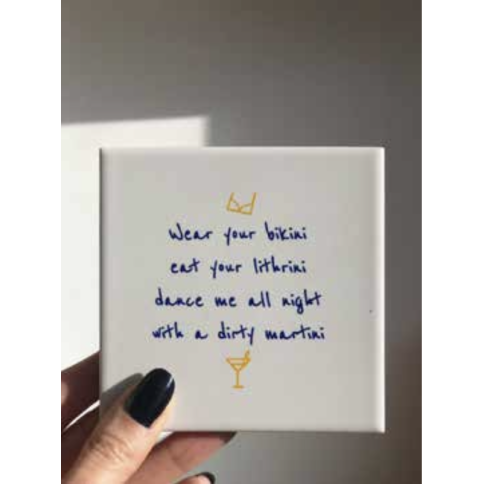 Wear your bikini
eat your lithrini
dance me all night
with a dirty martini